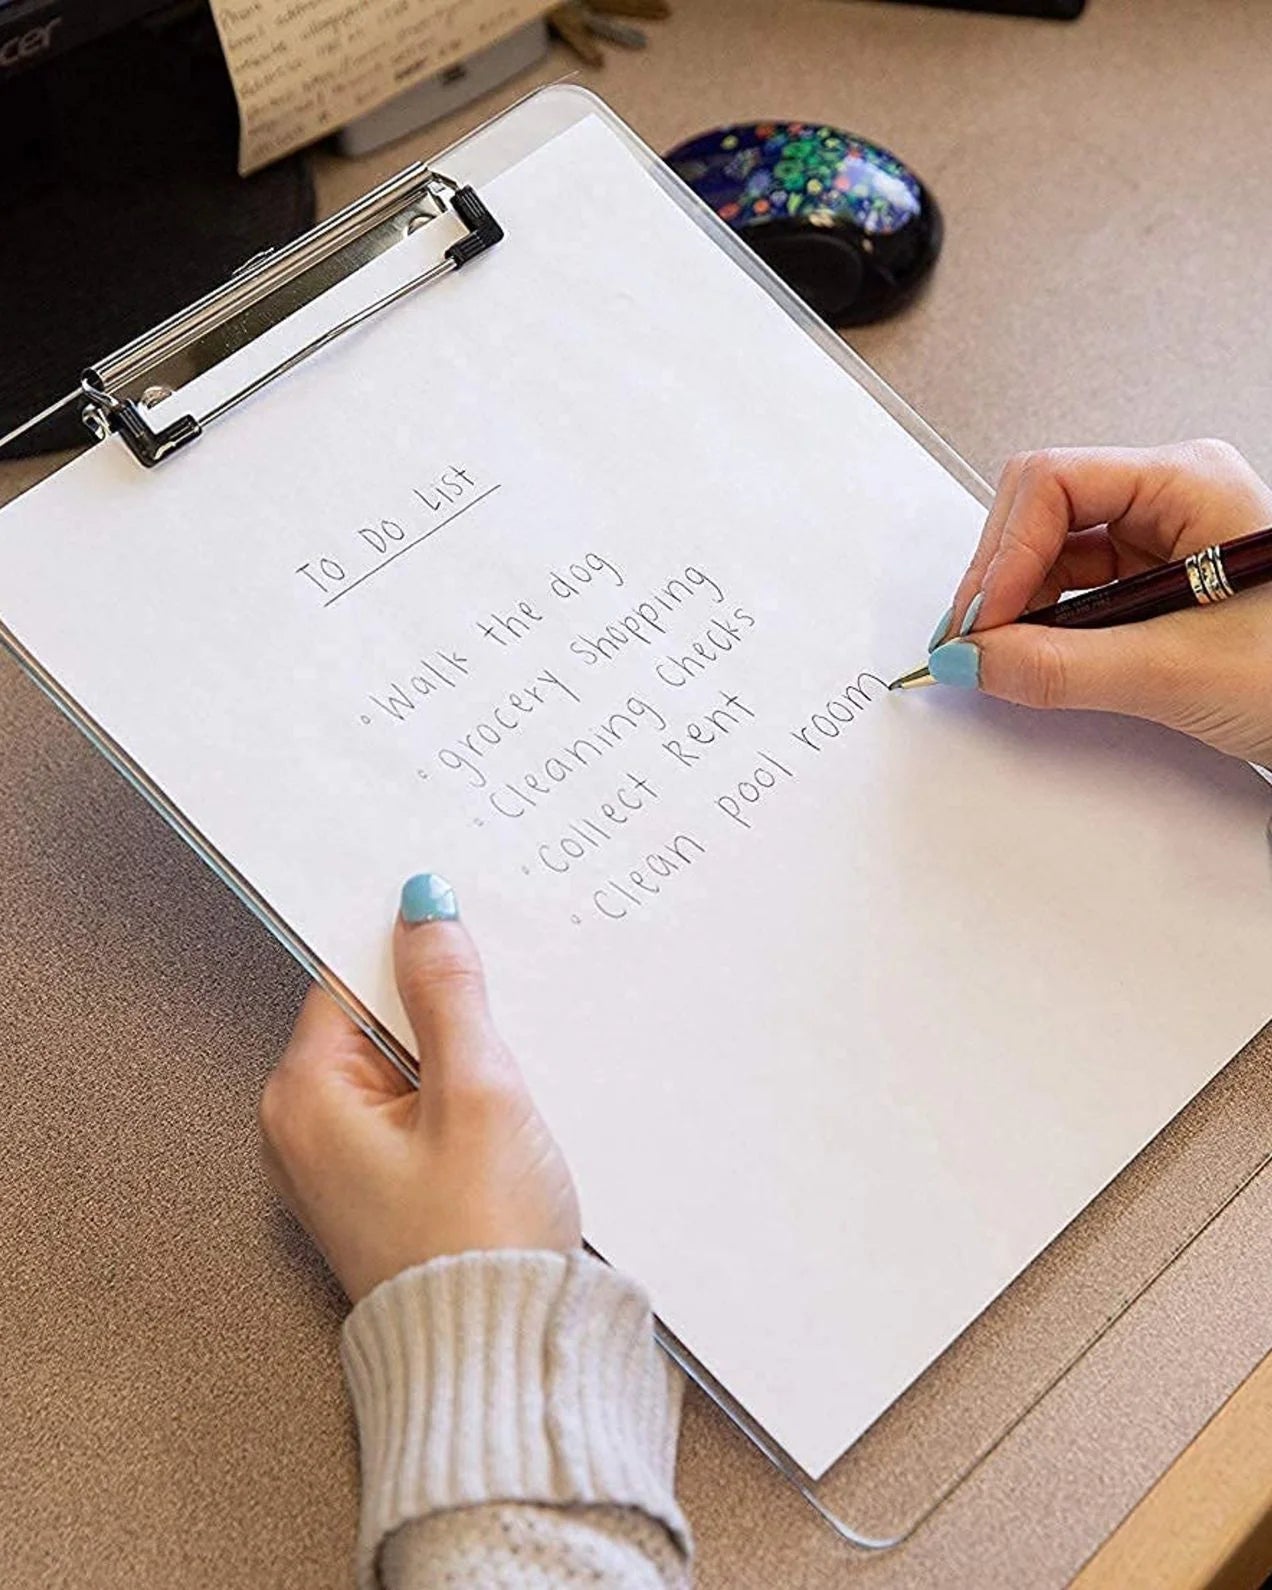 cer
To Do List
° Walk the dog
° grocery shopping
° Cleaning Checks
° Collect Rent
° Clean pool room